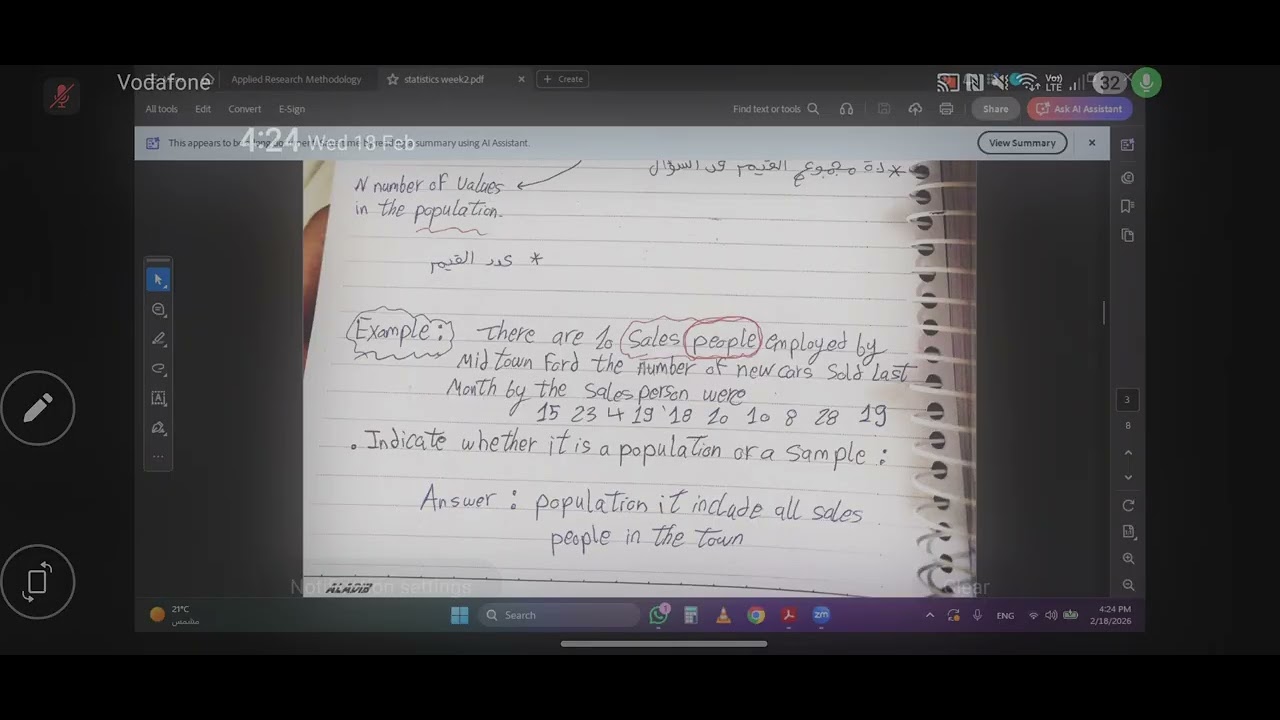 Vodafone
32
Applied Research Methodology
statistics week2.pdf
Create
All tools
Edit
Convert
E-Sign
Find text or tools
Share
Ask AI Assistant
4:24 Wed 18 Feb
This appears to be
summary using AI Assistant.
View Summary
N number of values
in the population.
* عدد القيم
Example: There are 10 Sales people employed by
Midtown Ford the number of new cars Sold Last
Month by the sales person were
15 23 4 19 18 10 10 8 28 19
. Indicate whether it is a population or a sample :
Answer : population it include all sales
people in the town
3
8
ALADIB
Notification settings
Clear
21°C
مشمس
Search
1
zm
ENG
4:24 PM
2/18/2026